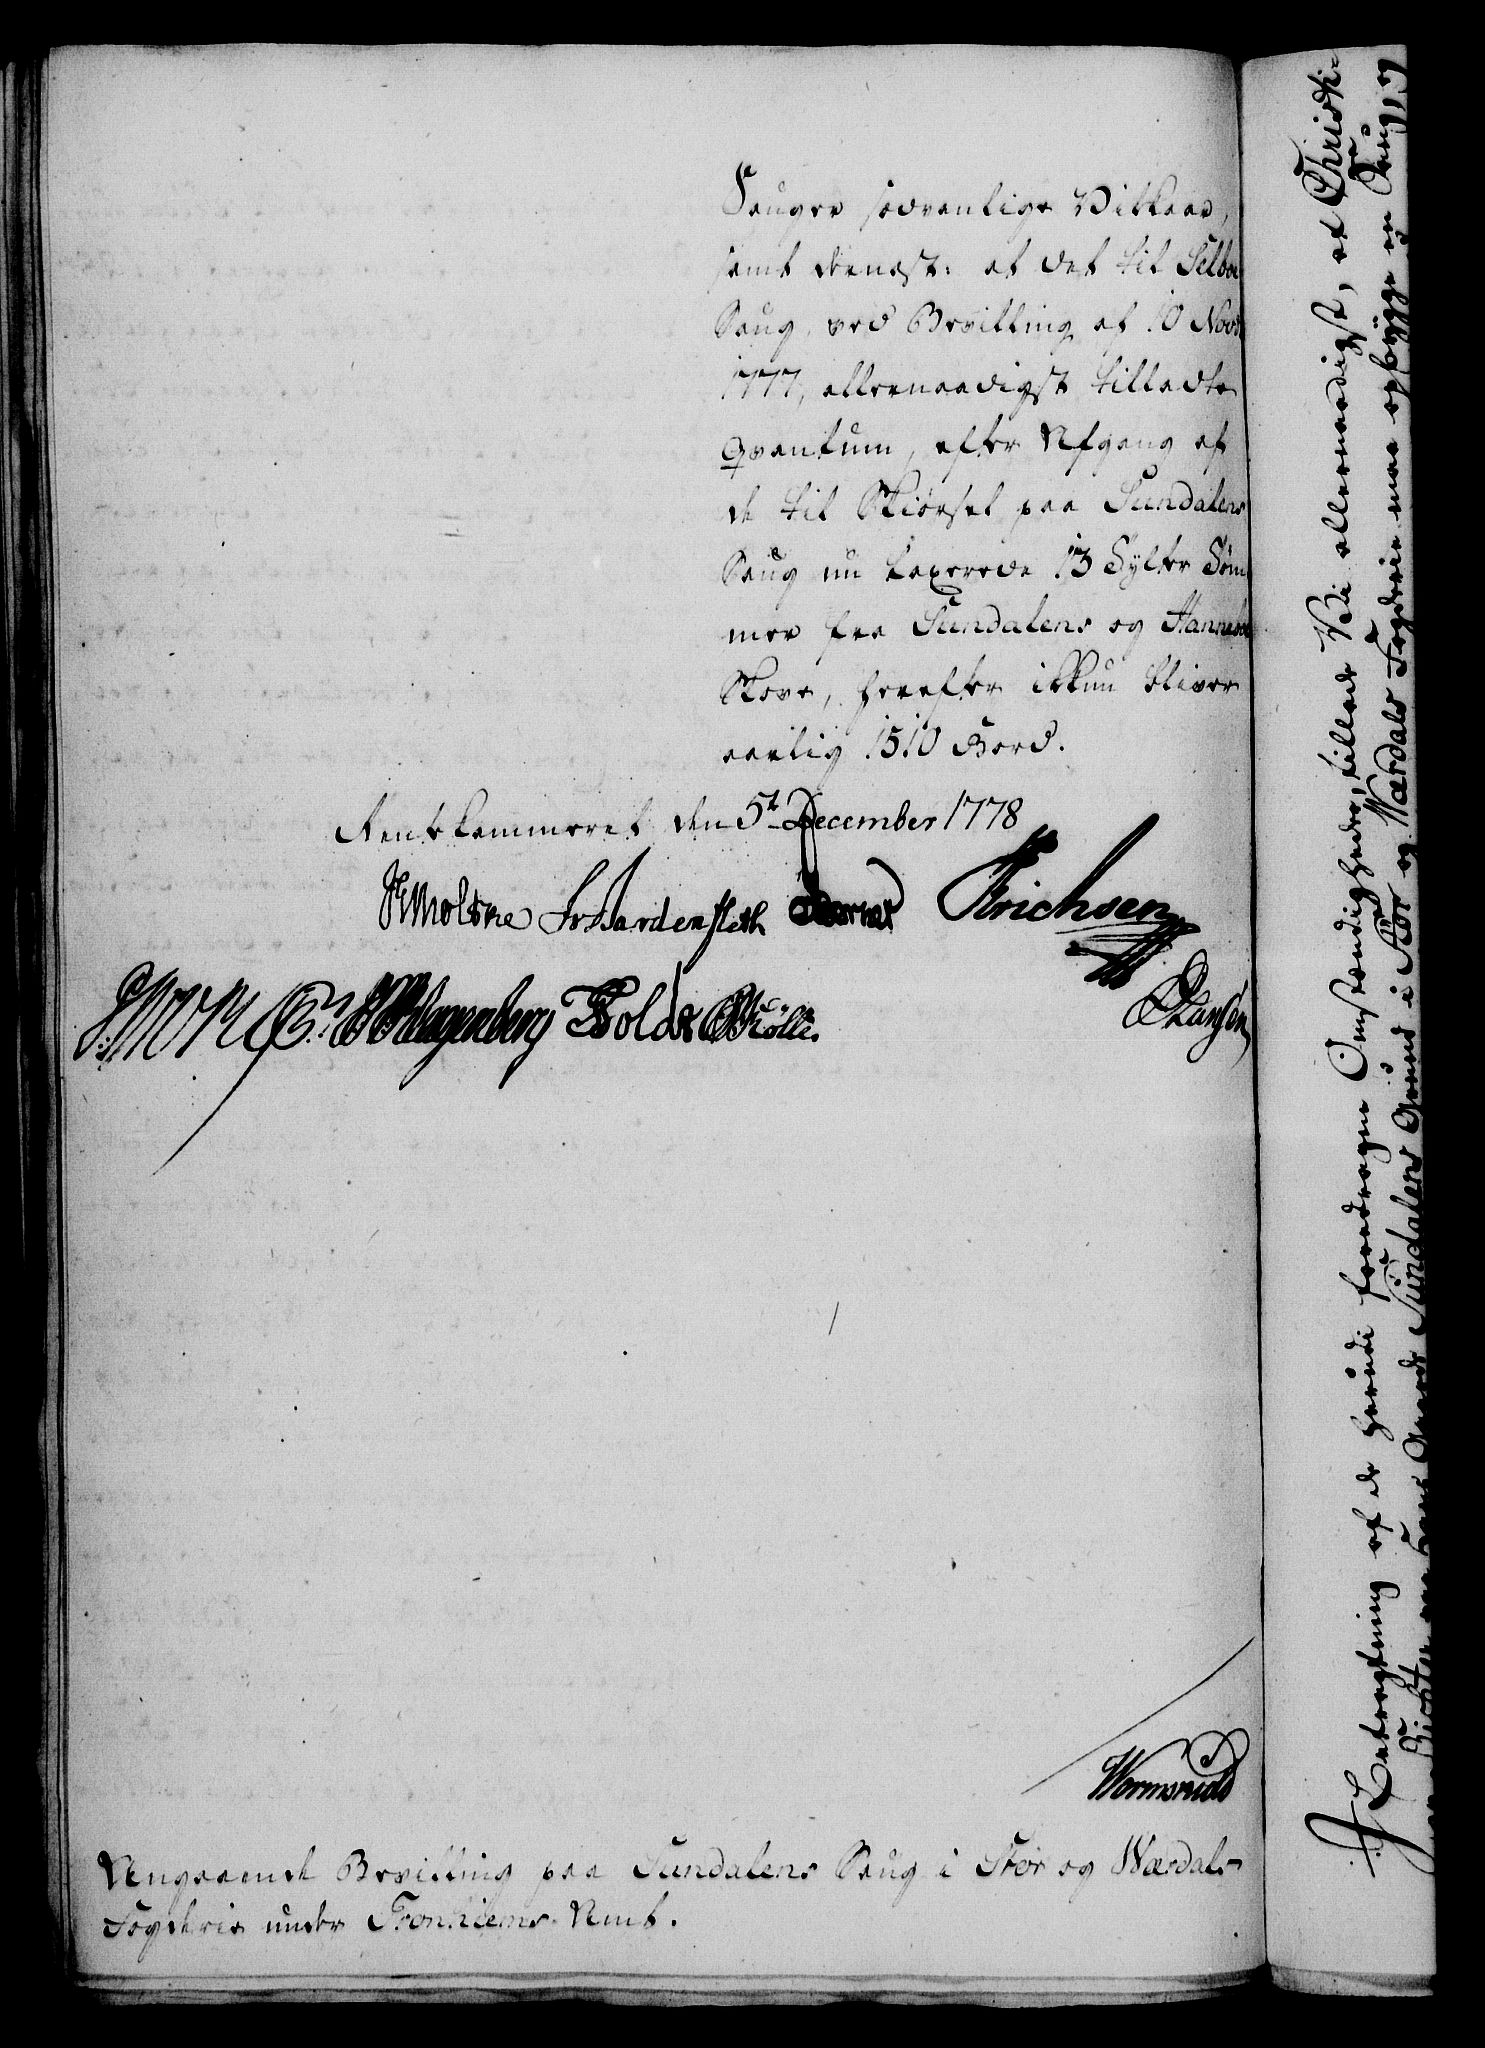 Sauger sædvanlige Vilkaar,
samt dernæst: at det til Selboe
Saug, ved Bevilling af 10 Novbr
1777, allernaadigst tilladte
Qvantum, efter Afgang af
de til Skiørsel paa Sundalens
Saug nu taxerede 13 Tylter Tøm-
mer fra Sundalens og Hanneboe
Skove, herefter ikkun bliver
aarlig 1510 Bord.
Rentekammeret den 5t December 1778
HMoltke FrHardenfleth Erichsen
Hagenberg Koldt CMölle.
Hansen
Wormskiold
Angaaende Bevilling paa Sundalens Saug i Stør og Værdals
Fogderie under Tronhiems Amt.
I Betragtning af de herudi foredragne Omstændigheder, tillade Vi allernaadigst, at Christi-
Richter paa hans Gaard Sundalens Grund i Stør og Værdals Fogderie maa opbygge en Saug